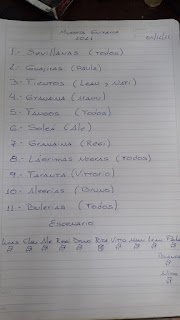 Muestra Guitarra
2021
1- Sevillanas (Todos)
2- Guajiras (Paula)
3- Tientos (Lean y Nati)
4- Granaina (Manu)
5- Tangos (Todos)
6- Soleá (Ale)
7- Granaina (Reei)
8- Lágrimas Negras (Todos)
9- Taranta (Vittorio)
10- Alegrías (Bruno)
11- Bulerías (Todos)
Escenario
Ale Bruno Vitto Manu Lean